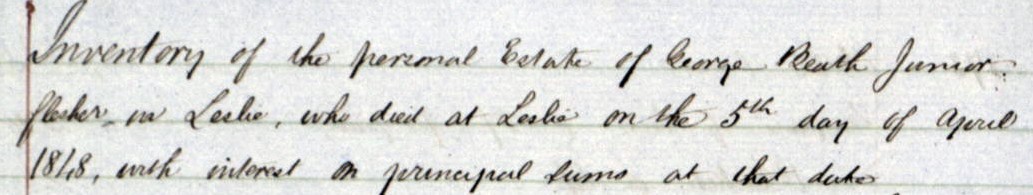 Inventory of the personal Estate of George Beath Junior.
flesher in Leslie, who died at Leslie on the 5th day of April
1848, with interest on principal sums at that date